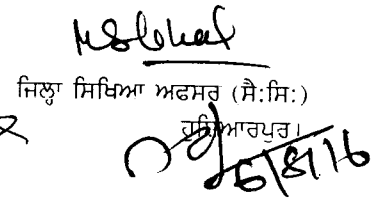 ਜਿਲ੍ਹਾ ਸਿਖਿਆ ਅਫਸਰ (ਸੈ:ਸਿ:)
ਹੁਸ਼ਿਆਰਪੁਰ।
5/8/16